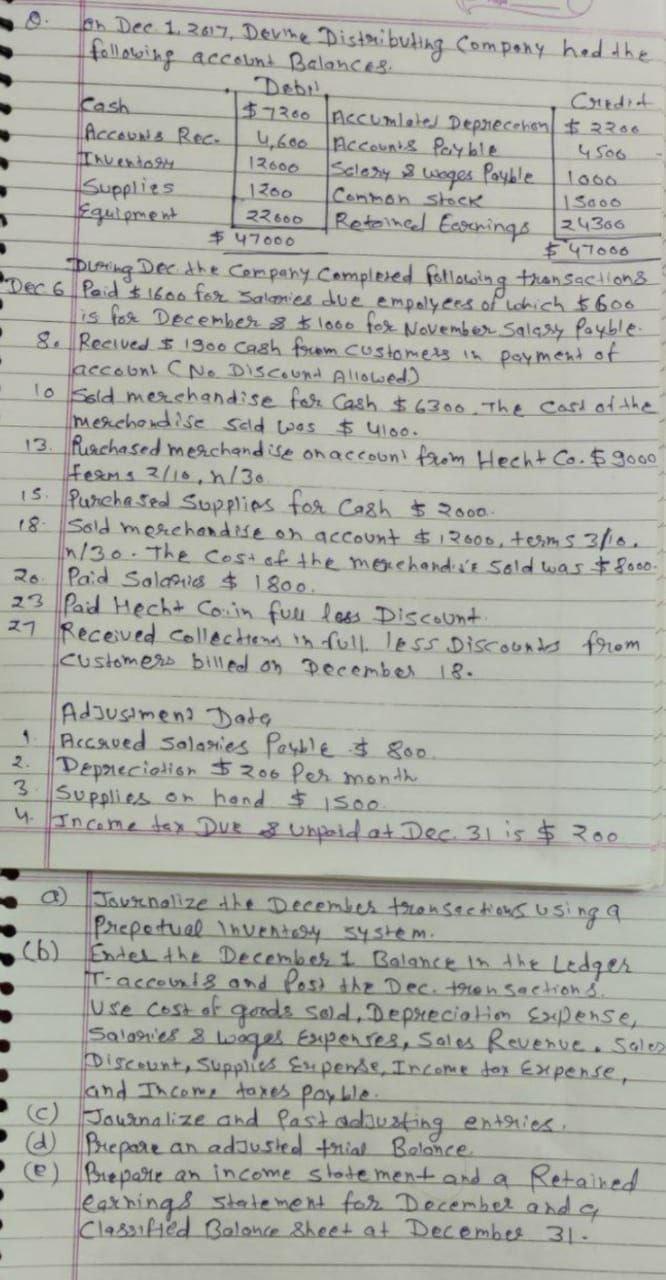 Q. On Dec. 1, 2017, Devine Distributing Company had the
following account Balances.
Debit Credit
Cash $ 7200 Accumlated Depreceation $ 2200
Accounts Rec. 4,600 Accounts Payble 4500
Inventory 12000 Salary & wages Payble 1000
Supplies 1200 Common stock 15000
Equipment 22000 Retained Earnings 24300
$ 47000 $ 47000
During Dec. the Company Completed following transactions
Dec 6 Paid $ 1600 for Salaries due empolyees of which $ 600
is for December & $ 1000 for November Salary Payble.
8. Recived $ 1900 cash from customers in payment of
account (No Discount Allowed)
10 Sold merchandise for Cash $ 6300. The Cost of the
merchandise sold was $ 4100.
13. Purchased merchandise on account from Hecht Co. $ 9000
terms 2/10, n/30
15. Purchased Supplies for Cash $ 2000.
18. Sold merchandise on account $ 12000, terms 3/10,
n/30. The Cost of the merchandise Sold was $ 8000.
20. Paid Salaries $ 1800.
23 Paid Hecht Co. in full less Discount.
27 Received Collections in full. less Discounts from
customers billed on December 18.
Adjustment Data
1. Accrued Salaries Payble $ 800.
2. Depreciation $ 200 Per month
3. Supplies on hand $ 1500.
4. Income tax Due & unpaid at Dec. 31 is $ 200
a) Journalize the December transections using a
Prepetual Inventory system.
(b) Enter the December 1 Balance in the Ledger
T-accounts and Post the Dec. transactions.
Use Cost of goods sold, Depreciation Expense,
Salaries & wages Expenses, Sales Revenue, Sales
Discount, Supplies Expense, Income tax Expense,
and Income taxes payble.
(c) Journalize and Post adjusting entries.
(d) Prepare an adjusted trial Balance.
(e) Prepare an income statement and a Retained
earnings statement for December and a
Classified Balance Sheet at December 31.